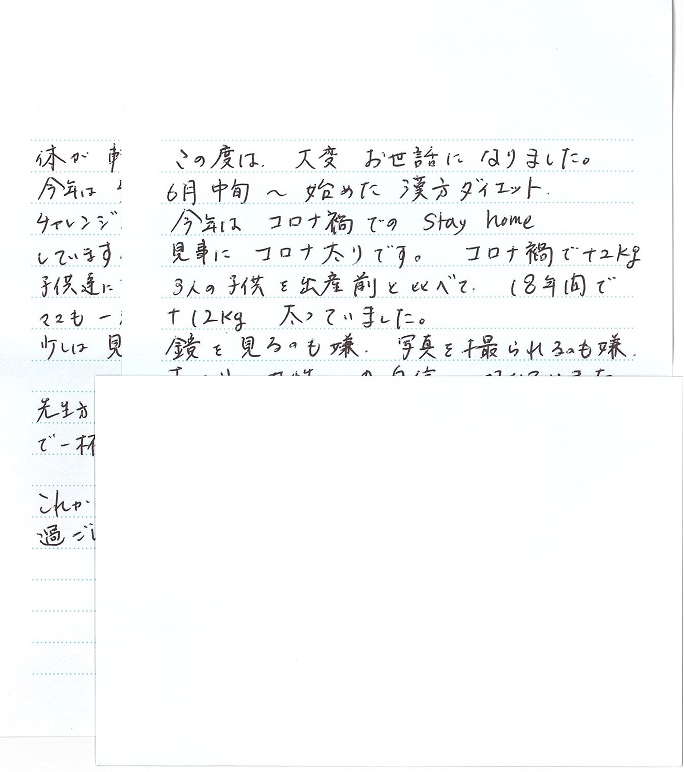 この度は、大変 お世話に なりました。
6月 中旬 〜 始めた 漢方ダイエット.
今年は コロナ禍 での Stay home
見事に コロナ太りです。 コロナ禍で+2kg
3人の子供を出産前と比べて、18年間で
+12kg 太っていました。
鏡を見るのも嫌. 写真を撮られるのも嫌.
体が
今年は
チャレンジ
しています.
子供達に
ママも 一
少しは 見
先生方
で一杯
これか
過ごし